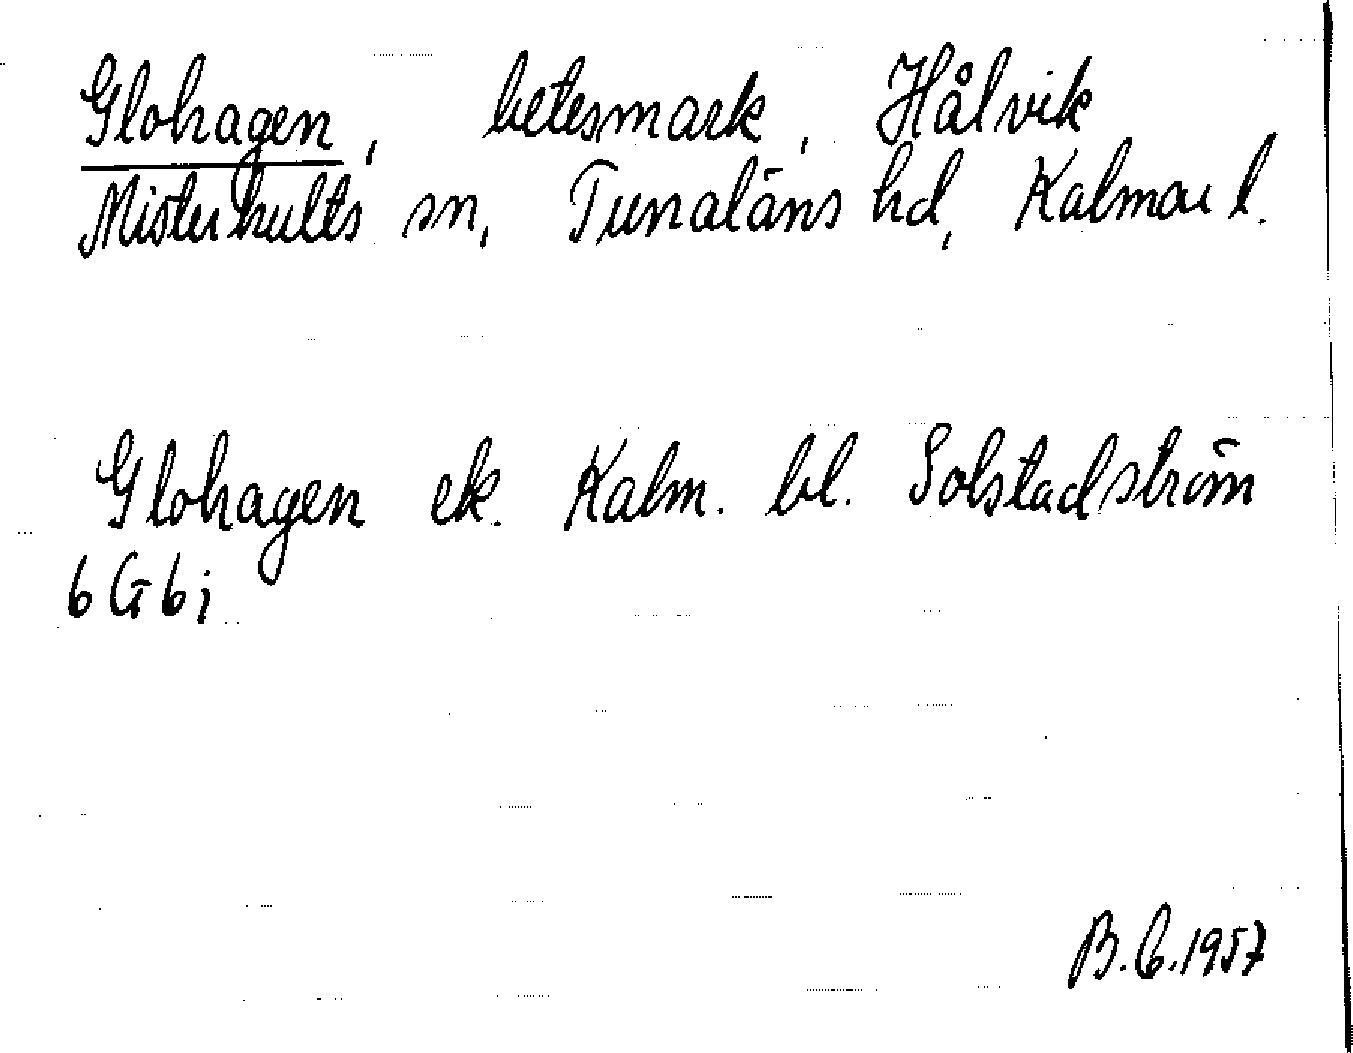 Glohagen, betesmark, Hålvik
Misterhults sn, Tunaläns hd, Kalmar l.
Glohagen ek. Kalm. bl. Solstadström
6G6j
B.C. 1957